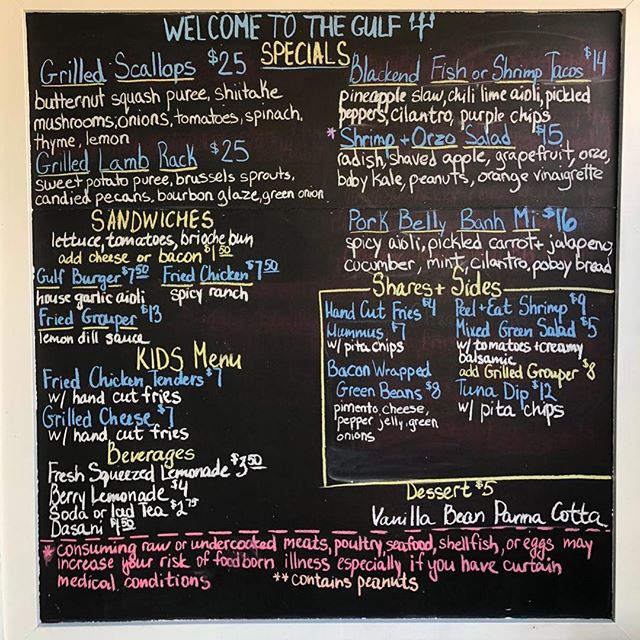 WELCOME TO THE GULF
SPECIALS
Grilled Scallops $25
butternut squash puree, shiitake
mushrooms, onions, tomatoes, spinach,
thyme, lemon
Grilled Lamb Rack $25
sweet potato puree, brussels sprouts,
candied pecans, bourbon glaze, green onion
Blackend Fish or Shrimp Tacos $14
pineapple slaw, chili lime aioli, pickled
peppers, cilantro, purple chips
* Shrimp + Orzo Salad $15
radish, shaved apple, grapefruit, orzo,
baby kale, peanuts, orange vinaigrette
SANDWICHES
lettuce, tomatoes, brioche bun
add cheese or bacon $1.50
Gulf Burger $7.50 Fried Chicken $7.50
house garlic aioli spicy ranch
Fried Grouper $13
lemon dill sauce
Pork Belly Banh Mi $16
spicy aioli, pickled carrot + jalapeno,
cucumber, mint, cilantro, poboy bread
KIDS Menu
Fried Chicken Tenders $7
w/ hand cut fries
Grilled Cheese $7
w/ hand cut fries
Beverages
Fresh Squeezed Lemonade $3.50
Berry Lemonade $4
Soda or Iced Tea $2.75
Dasani $1.50
Shares + Sides
Hand Cut Fries $4
Hummus $7
w/ pita chips
Bacon Wrapped
Green Beans $8
pimento cheese,
pepper jelly, green
onions
Peel + Eat Shrimp $9
Mixed Green Salad $5
w/ tomatoes + creamy
balsamic
add Grilled Grouper $8
Tuna Dip $12
w/ pita chips
Dessert $5
Vanilla Bean Panna Cotta
* consuming raw or undercooked meats, poultry, seafood, shellfish, or eggs may
increase your risk of foodborn illness especially if you have curtain
medical conditions **contains peanuts